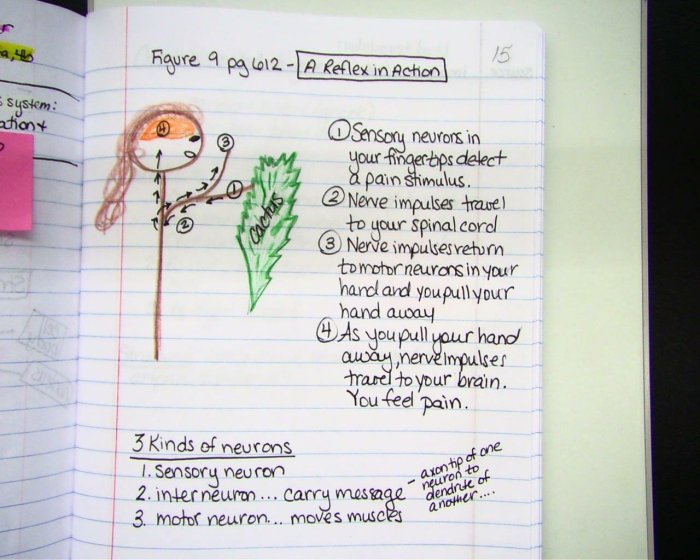 15
Figure 9 pg 612 - A Reflex in Action
4
3
1
2
cactus
① Sensory neurons in
your fingertips detect
a pain stimulus.
② Nerve impulses travel
to your spinal cord
③ Nerve impulses return
to motor neurons in your
hand and you pull your
hand away
④ As you pull your hand
away, nerve impulses
travel to your brain.
You feel pain.
3 Kinds of neurons
1. Sensory neuron
2. interneuron... carry message - axon tip of one
neuron to
dendrite of
another....
3. motor neuron... moves muscles
system: